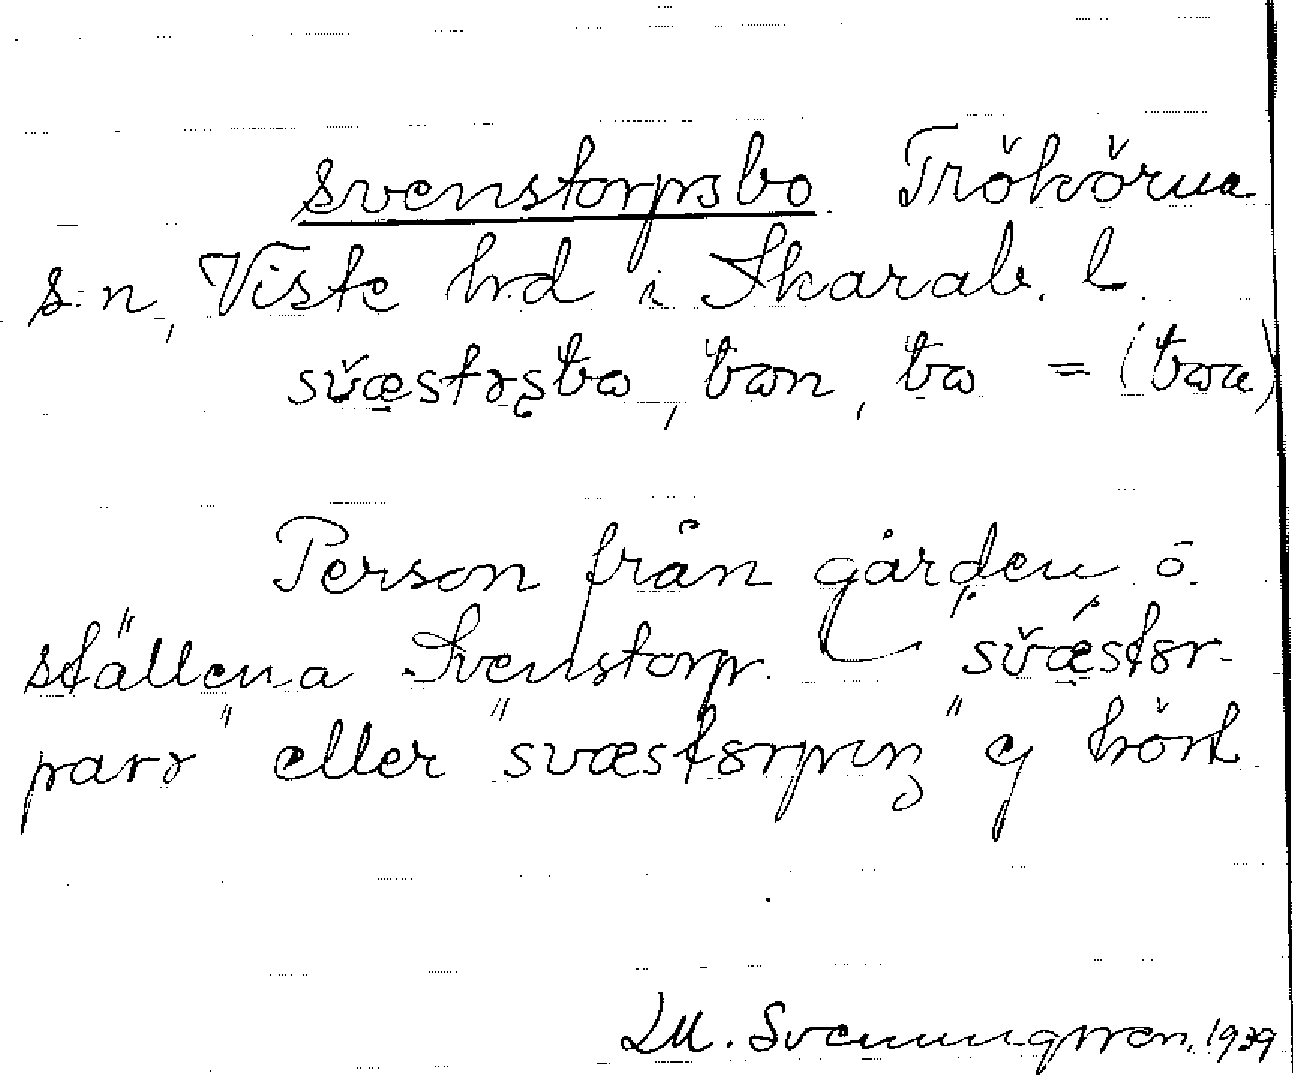 svenstorpsbo Trökörna
s:n, Viste hd i Skarab. l.
svæstɤʂbɷ, bɷn, bɷ = (bɷa)
Person från gården o.
ställena Svenstorp. "svæstɤr-
parɤ" eller "svæstɤrpɪŋ" ej hört
LM. Svenungsson, 1939